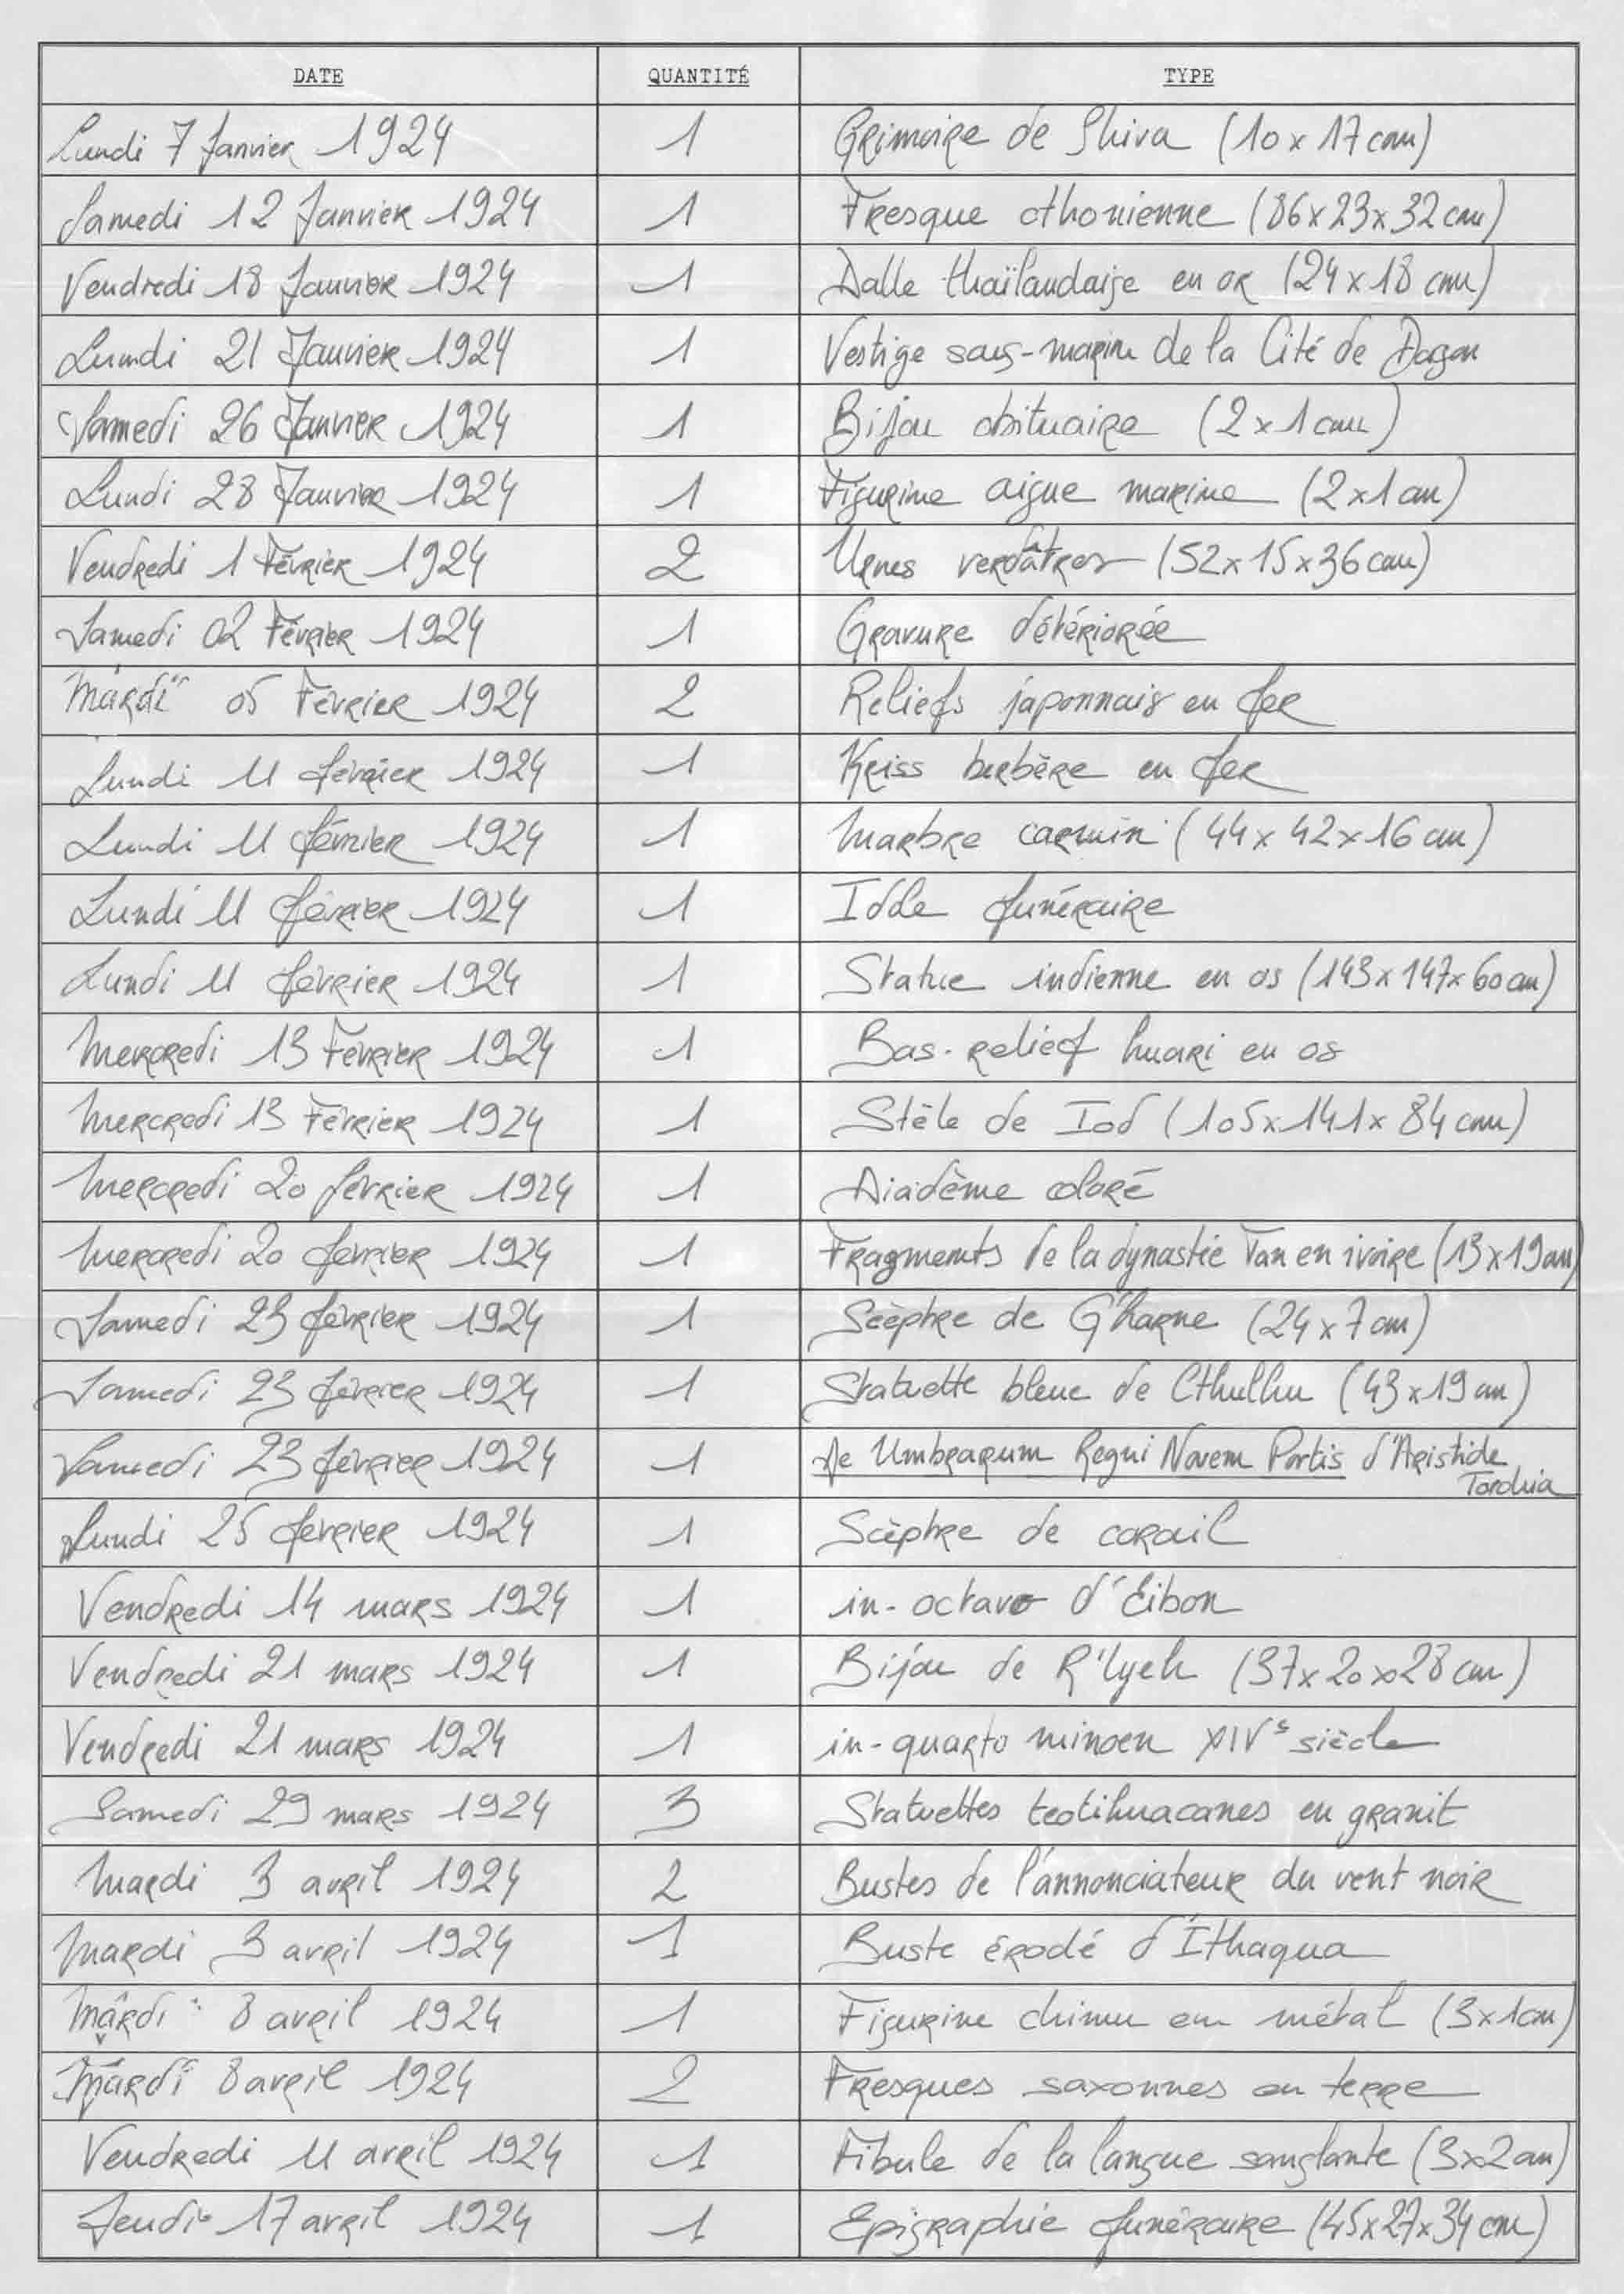 DATE QUANTITÉ TYPE
Lundi 7 Janvier 1924 1 Grimoire de Shiva (10 x 17 cm)
Samedi 12 Janvier 1924 1 Fresque cthonienne (86 x 23 x 32 cm)
Vendredi 18 Janvier 1924 1 Dalle thaïlandaise en or (24 x 18 cm)
Lundi 21 Janvier 1924 1 Vestige sous-marin de la Cité de Dagon
Samedi 26 Janvier 1924 1 Bijou obituaire (2 x 1 cm)
Lundi 28 Janvier 1924 1 Figurine aigue marine (2 x 1 cm)
Vendredi 1 Février 1924 2 Urnes verdâtres (52 x 15 x 36 cm)
Samedi 02 Février 1924 1 Gravure détériorée
Mardi 05 Février 1924 2 Reliefs japonnais en fer
Lundi 11 février 1924 1 Kriss berbère en fer
Lundi 11 février 1924 1 Marbre carmin (44 x 42 x 16 cm)
Lundi 11 février 1924 1 Idole funéraire
Lundi 11 février 1924 1 Statue indienne en os (143 x 147 x 60 cm)
Mercredi 13 Février 1924 1 Bas-relief huari en os
Mercredi 13 Février 1924 1 Stèle de Iod (105 x 141 x 84 cm)
Mercredi 20 février 1924 1 Diadème coloré
Mercredi 20 février 1924 1 Fragments de la dynastie Tan en ivoire (13 x 19 cm)
Samedi 23 février 1924 1 Scèptre de G'harne (24 x 7 cm)
Samedi 23 février 1924 1 Statuette bleue de Cthulhu (43 x 19 cm)
Samedi 23 février 1924 1 De Umbrarum Regni Novem Portis d'Aristide
Torchia
Lundi 25 février 1924 1 Scèptre de corail
Vendredi 14 mars 1924 1 in-octavo d'Eibon
Vendredi 21 mars 1924 1 Bijou de R'lyeh (37 x 20 x 28 cm)
Vendredi 21 mars 1924 1 in-quarto minoen XIVe siècle
Samedi 29 mars 1924 3 Statuettes teotihuacanes en granit
Mardi 3 avril 1924 2 Bustes de l'annonciateur du vent noir
Mardi 3 avril 1924 1 Buste érodé d'Ithaqua
Mardi 8 avril 1924 1 Figurine chimu en métal (3 x 1 cm)
Mardi 8 avril 1924 2 Fresques saxonnes en terre
Vendredi 11 avril 1924 1 Fibule de la langue sanglante (3 x 2 cm)
Jeudi 17 avril 1924 1 Epigraphie funéraire (45 x 27 x 34 cm)